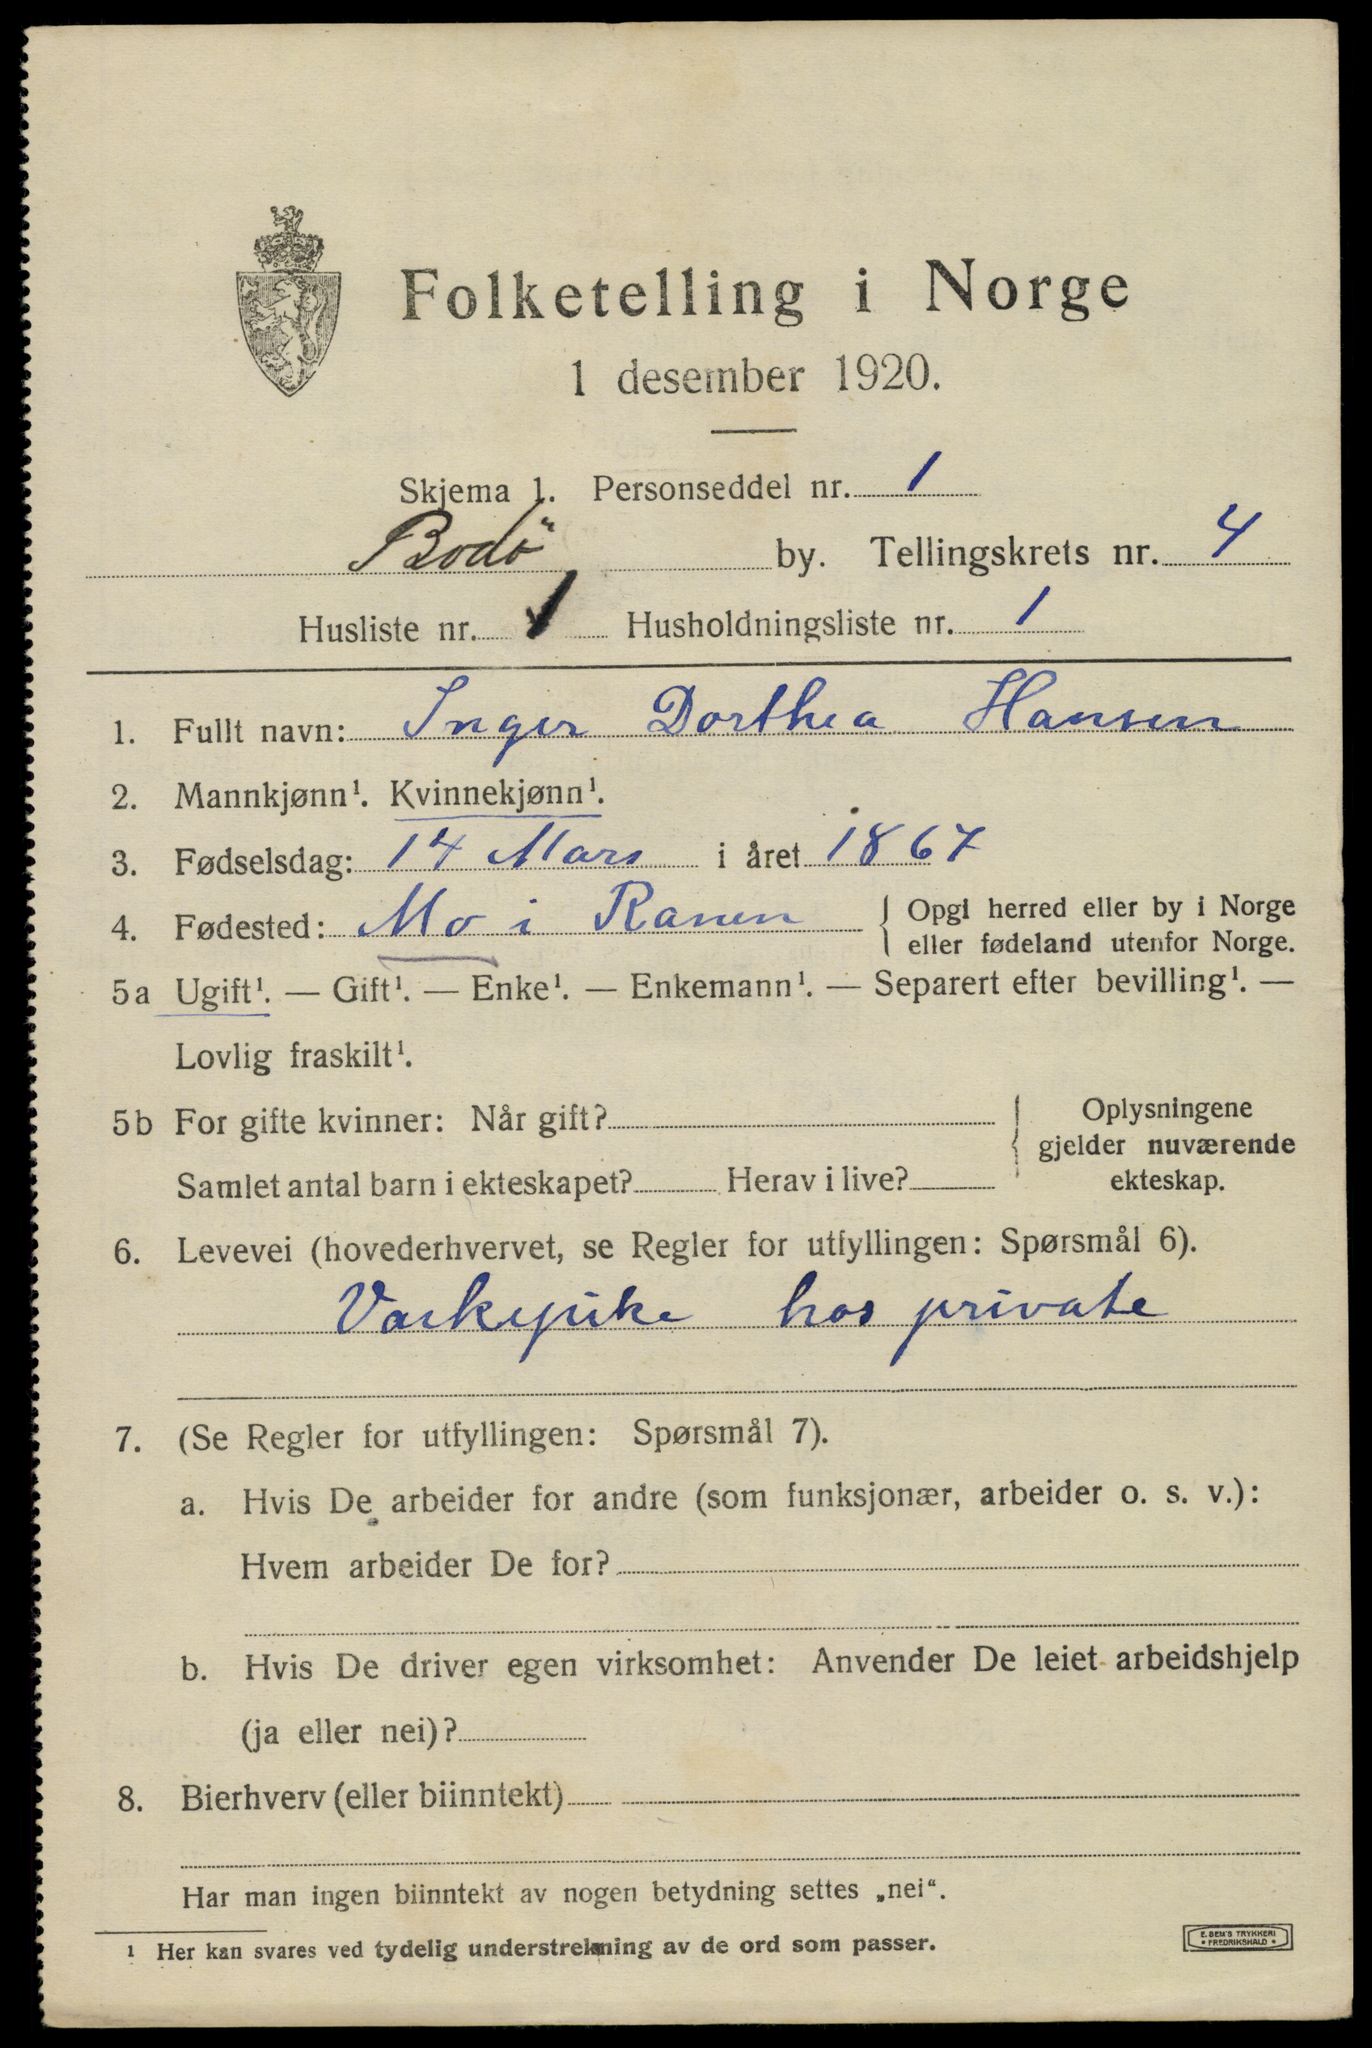 Folketelling i Norge
1 desember 1920.
Skjema 1. Personseddel nr. 1
Bodö by. Tellingskrets nr. 4
Husliste nr. 1 Husholdningsliste nr. 1
1. Fullt navn: Inger Dorthea Hansen
2. Mannkjønn¹. Kvinnekjønn¹.
3. Fødselsdag: 14 Mars i året 1867
4. Fødested: Mo i Ranen { Opgi herred eller by i Norge
eller fødeland utenfor Norge.
5a Ugift¹. — Gift¹. — Enke¹. — Enkemann¹. — Separert efter bevilling¹. —
Lovlig fraskilt¹.
5b For gifte kvinner: Når gift? { Oplysningene
gjelder nuværende
Samlet antal barn i ekteskapet? Herav i live? ekteskap.
6. Levevei (hovederhvervet, se Regler for utfyllingen: Spørsmål 6).
Vaskepike hos private
7. (Se Regler for utfyllingen: Spørsmål 7).
a. Hvis De arbeider for andre (som funksjonær, arbeider o. s. v.):
Hvem arbeider De for?
b. Hvis De driver egen virksomhet: Anvender De leiet arbeidshjelp
(ja eller nei)?
8. Bierhverv (eller biinntekt)
Har man ingen biinntekt av nogen betydning settes „nei“.
¹ Her kan svares ved tydelig understrekning av de ord som passer.
E. SEM'S TRYKKERI
• FREDRIKSHALD •